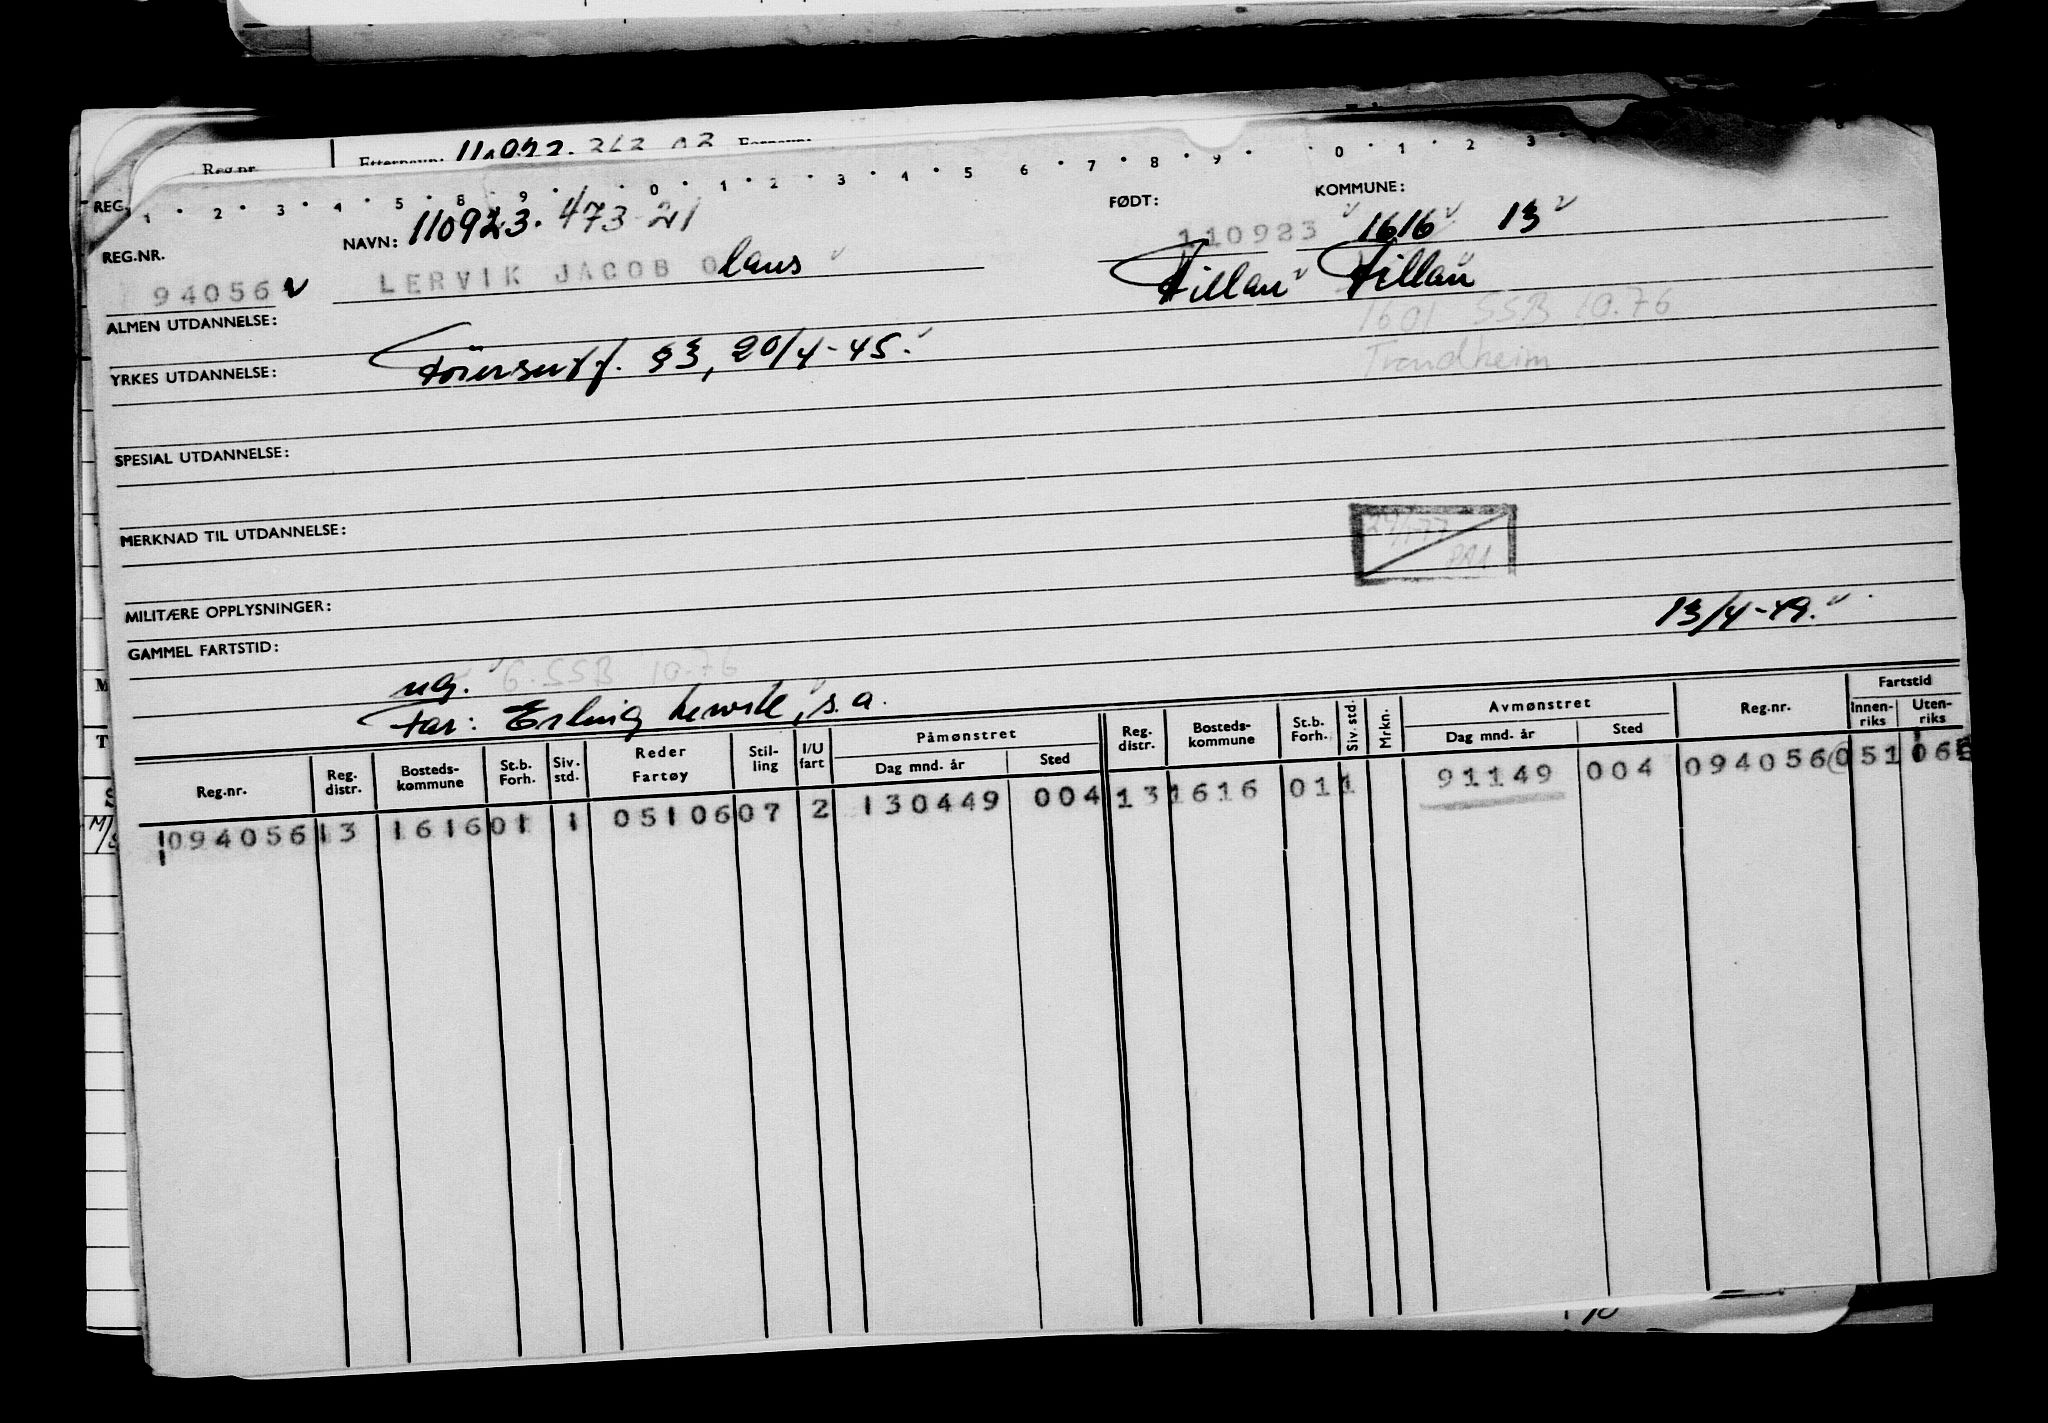 Reg.nr. Etternavn: 110923.
REG.
1 · 2 · 3 · 4 · 5 · 8 · 9 · 0 · 1 · 2 · 3 · 4 · 5 6 · 7 · 8 · 9 · 0 · 1 · 2 · 3
REG.NR. NAVN: 110923. 473 21 FØDT: 110923 KOMMUNE: 1616 13
94056 LERVIK JACOB Olaus Fillan Fillan
ALMEN UTDANNELSE: 1601 SSB 10.76
YRKES UTDANNELSE: §3, 20/4-45. Trondheim
SPESIAL UTDANNELSE:
MERKNAD TIL UTDANNELSE:
MILITÆRE OPPLYSNINGER:
GAMMEL FARTSTID: 13/4-49.
ug. G.SSB 10-76
Far: Erling Lervik, s.a.
Reg.nr. Reg. distr. Bosteds-kommune St.b. Forh. Siv. std. Reder Fartøy Stil-ling I/U fart Påmønstret Dag mnd. år Sted Reg. distr. Bosteds-kommune St.b. Forh. Siv. std. Mrkn. Avmønstret Dag mnd. år Sted Reg.nr. Fartstid Innen-riks Uten-riks
094056 13 1616 01 1 05106 07 2 130449 004 13 1616 01 1 91149 004 094056 051 06